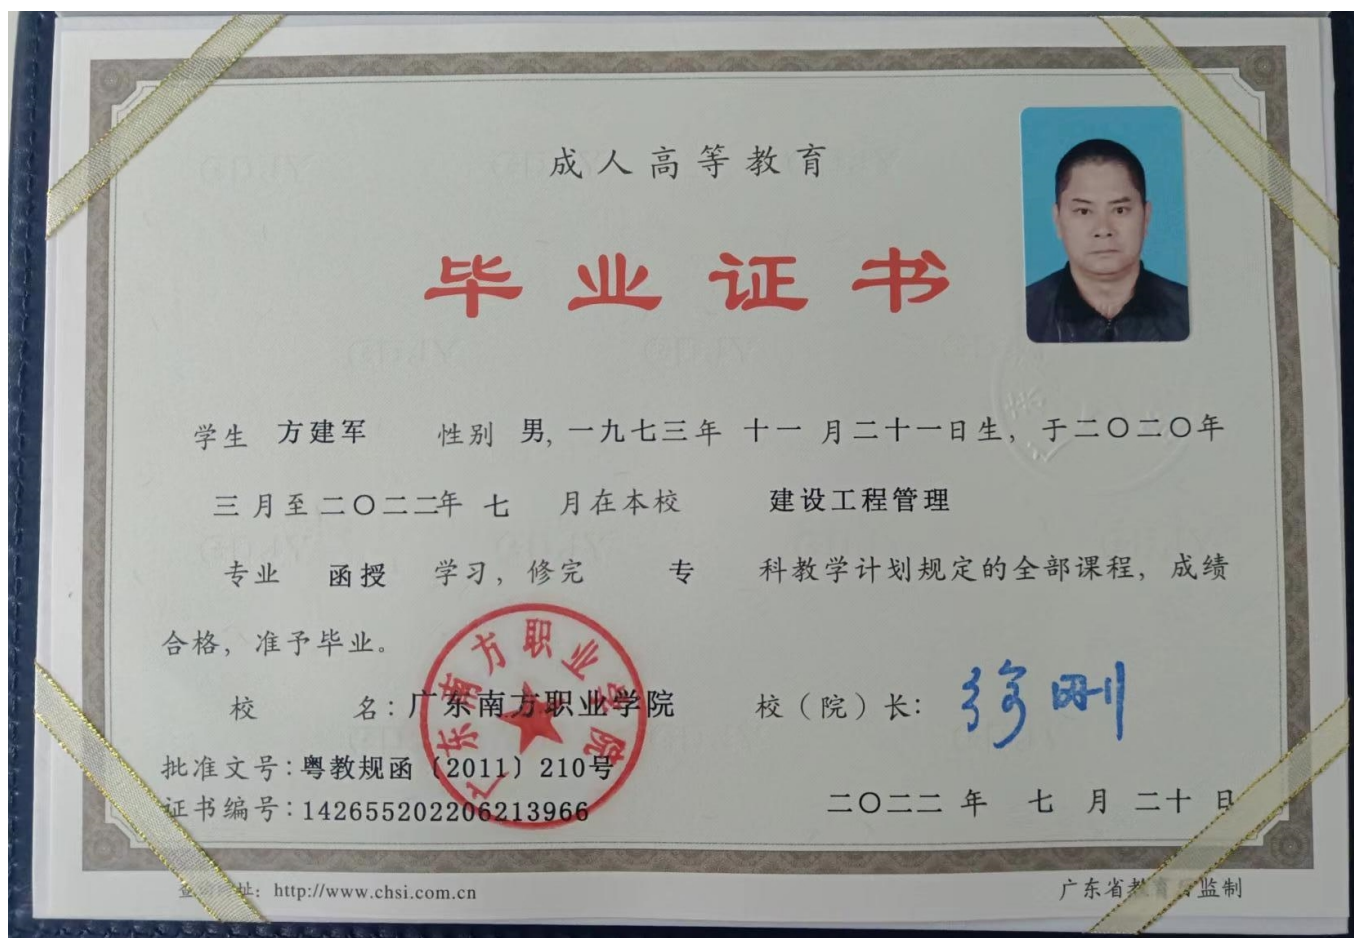 成人高等教育
毕业证书
学生 方建军 性别 男, 一九七三年 十一 月二十一日生, 于二〇二〇年
三月至二〇二二年 七 月在本校 建设工程管理
专业 函授 学习, 修完 专 科教学计划规定的全部课程, 成绩
合格, 准予毕业。
校 名: 广东南方职业学院 校（院）长: 徐刚
广东南方职业学院
批准文号: 粤教规函〔2011〕210号
证书编号: 142655202206213966
二〇二二 年 七 月 二十 日
址: http://www.chsi.com.cn
广东省教育厅监制